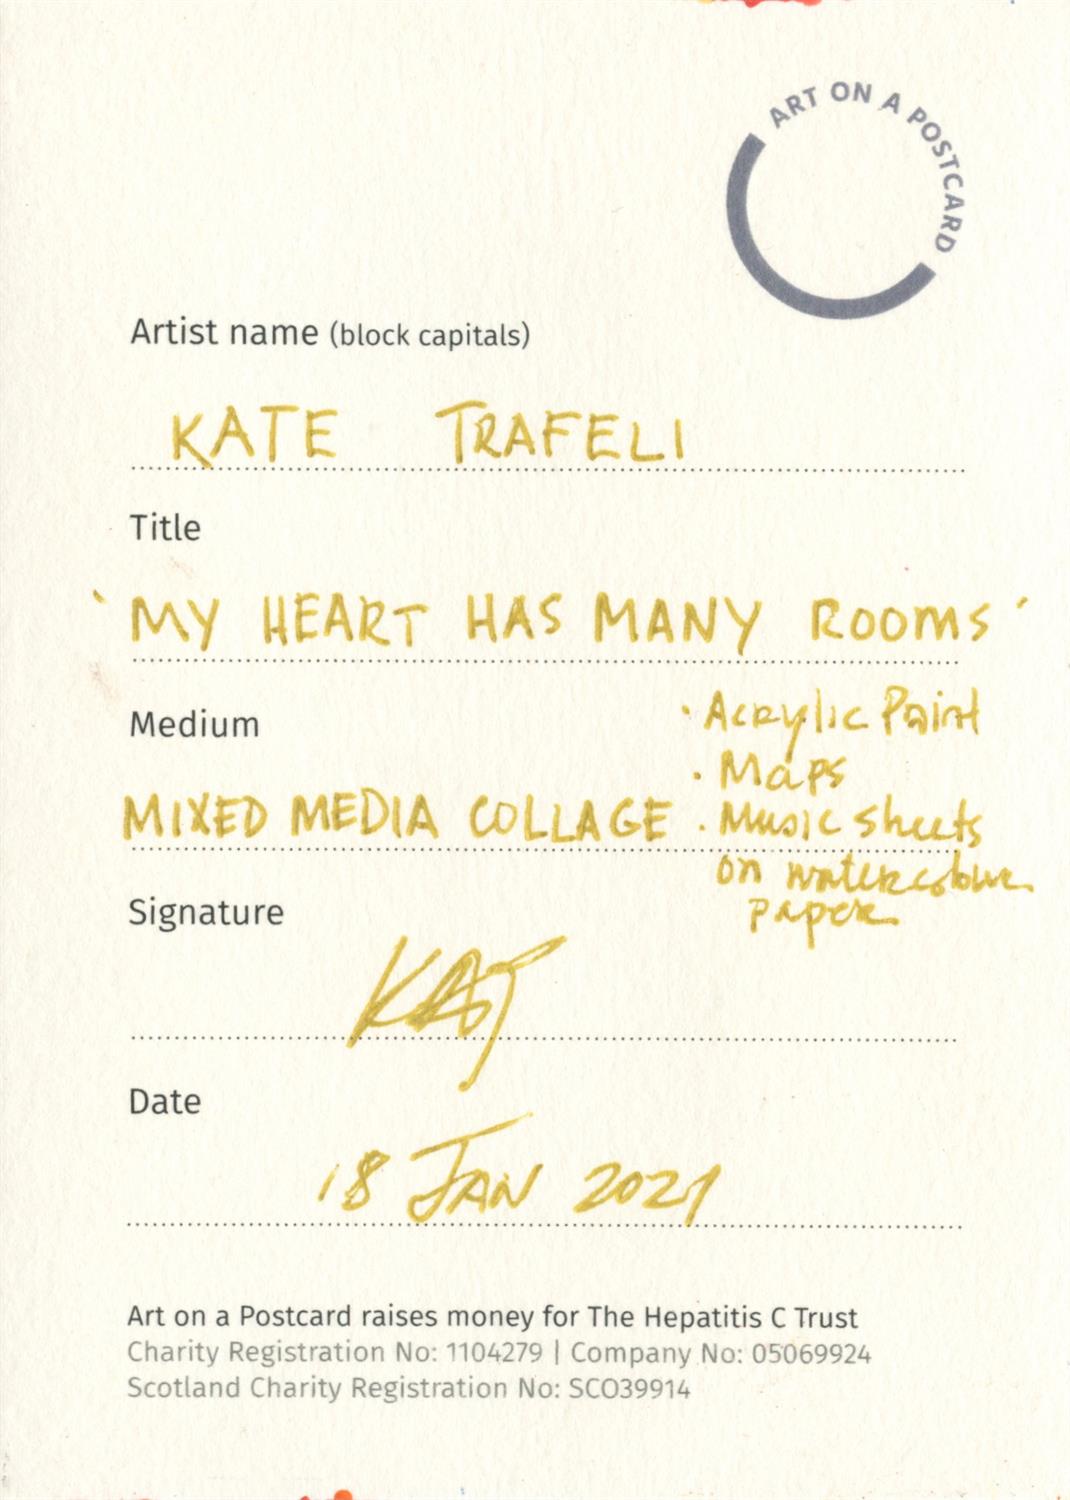 ART ON A POSTCARD
Artist name (block capitals)
KATE TRAFELI
Title
'MY HEART HAS MANY ROOMS'
Medium
· Acrylic Paint
· Maps
MIXED MEDIA COLLAGE · Music sheets
on watercolour
paper
Signature
KAT
Date
18 JAN 2021
Art on a Postcard raises money for The Hepatitis C Trust
Charity Registration No: 1104279 | Company No: 05069924
Scotland Charity Registration No: SCO39914